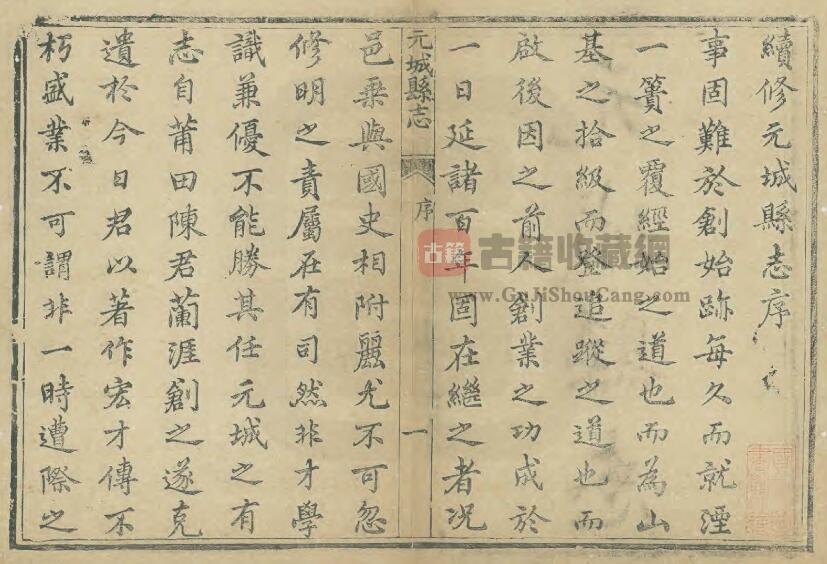 續修元城縣志序
事固難於創始跡每久而就湮
一簣之覆經始之道也而為山
基之拾級而登追蹤之道也而
啟後因之前人創業之功成於
一日延諸百年固在繼之者况
元城縣志
序
一
邑乗與國史相附麗尤不可忽
修明之責屬在有司然非才學
識兼優不能勝其任元城之有
志自莆田陳君蘭涯創之遂克
遺於今日君以著作宏才傳不
朽盛業不可謂非一時遭際之
古籍
古籍收藏網
www.GuJiShouCang.com